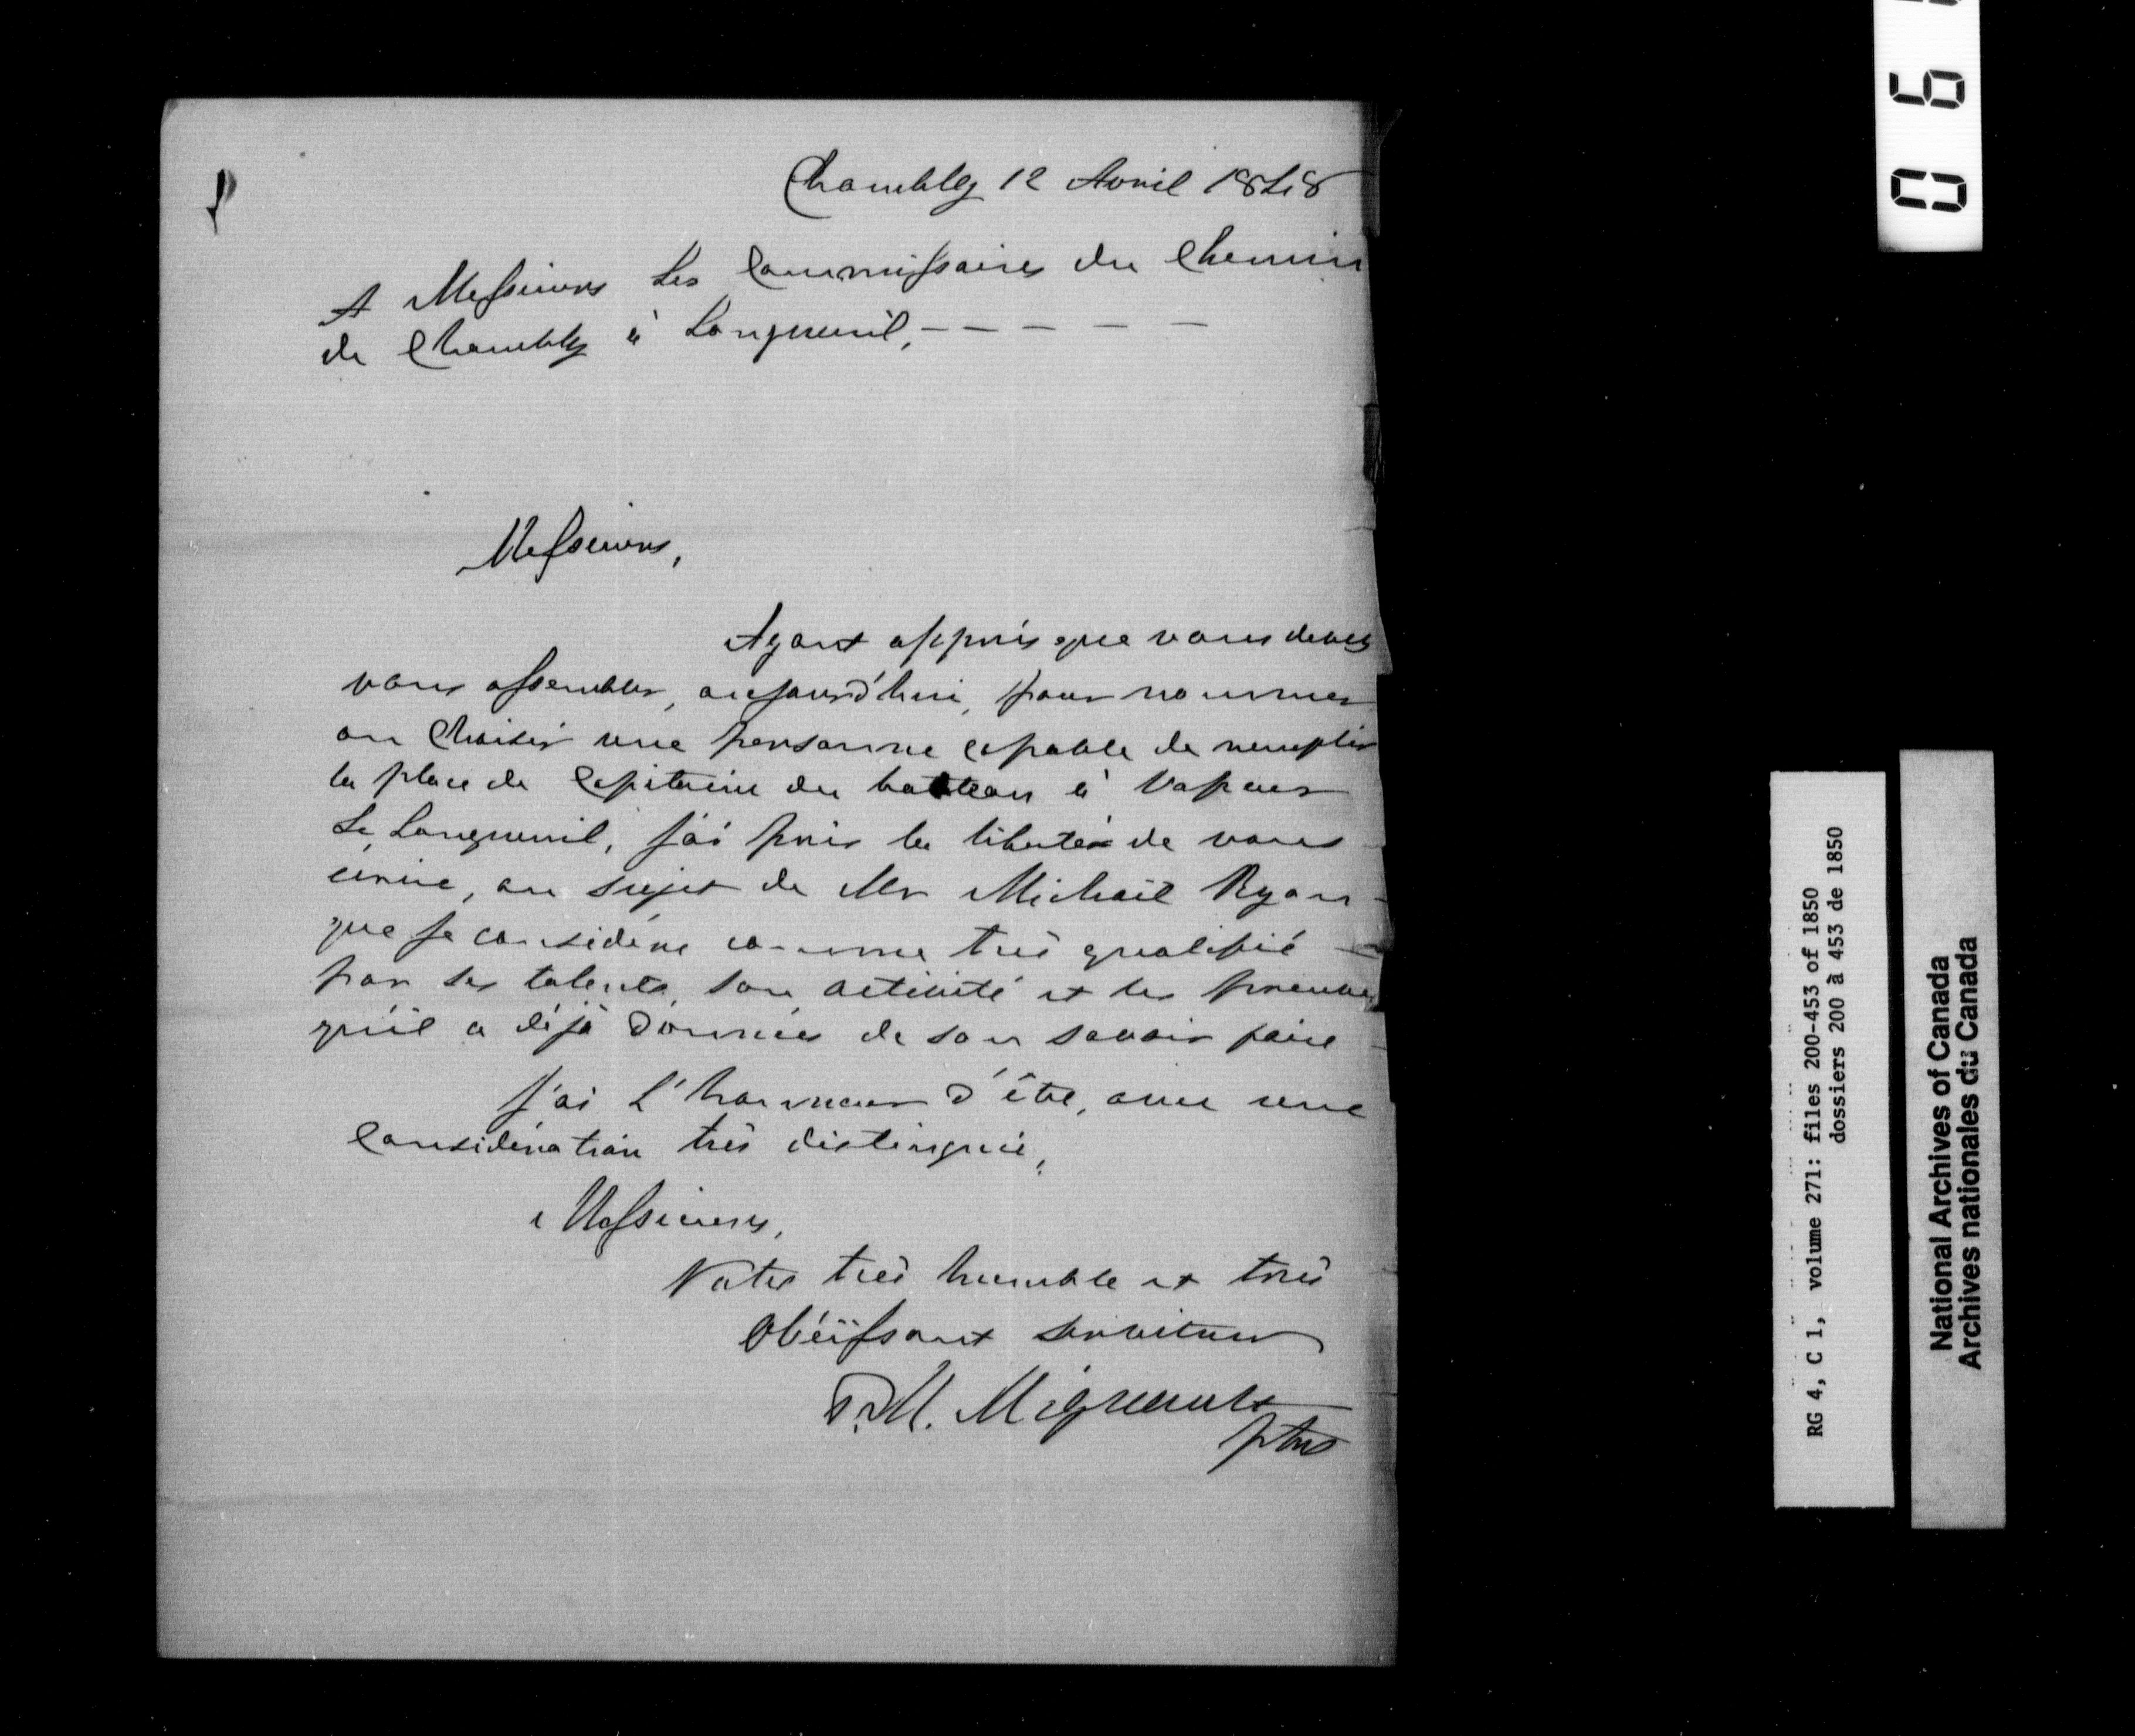 Chambly 12 Avril 1848
A Messieurs Les Commissaires du Chemin
de Chambly à Longueuil, – – – – –
Messieurs,
Ayant appris que vous devez
vous assembler, aujourd'hui, pour nommer
ou Choisir une personne capable de remplir
la place de Capitaine du batteau à Vapeur
Le Longueuil, j'ai pris la liberté de vous
écrire, au sujet de Mr Michael Ryan
que je considère comme très qualifié
par ses talents, son activité et les preuves
qu'il a déjà données de son savoir faire
J'ai l'honneur d'être, avec une
Considération très distinguée,
Messieurs,
Votre très humble et très
Obéïssant serviteur
P. M. Mignault
ptre
0 6
RG 4, C 1, volume 271: files 200-453 of 1850
dossiers 200 à 453 de 1850
National Archives of Canada
Archives nationales du Canada